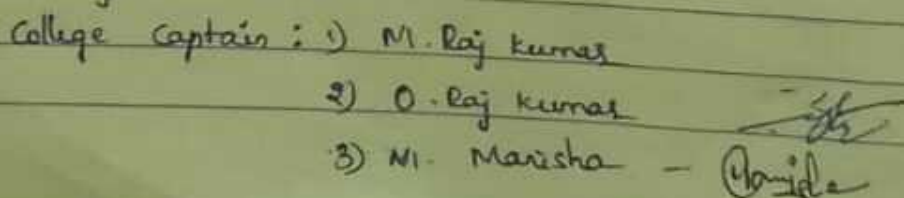 College Captain : 1) M. Raj kumar
2) O. Raj kumar
3) M. Manisha -